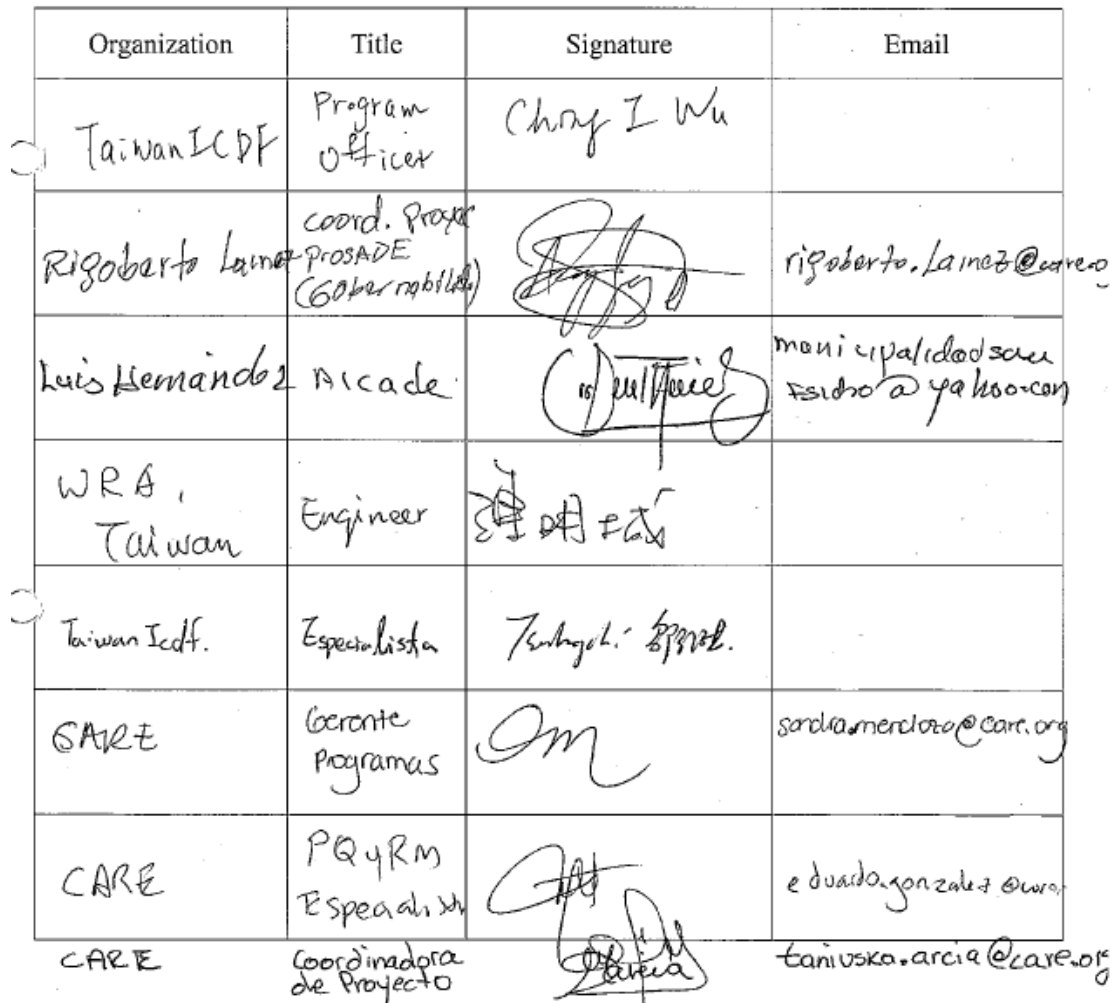 Organization Title Signature Email
TaiwanICDF Program Officer Chong I Wu
Rigoberto Lainez coord. Proyec
PROSADE
(Gobernabilidad) rigoberto.Lainez@care.o
Luis Hernández Alcade municipalidadsan
Isidro@yahoo.com
WRA,
Taiwan Engineer
Taiwan Icdf. Especialista
CARE Gerente
Programas sandra.mendoza@care.org
CARE PQyRM
Especialista eduardo.gonzalez@care
CARE Coordinadora
de Proyecto Garcia taniuska.arcia@care.org